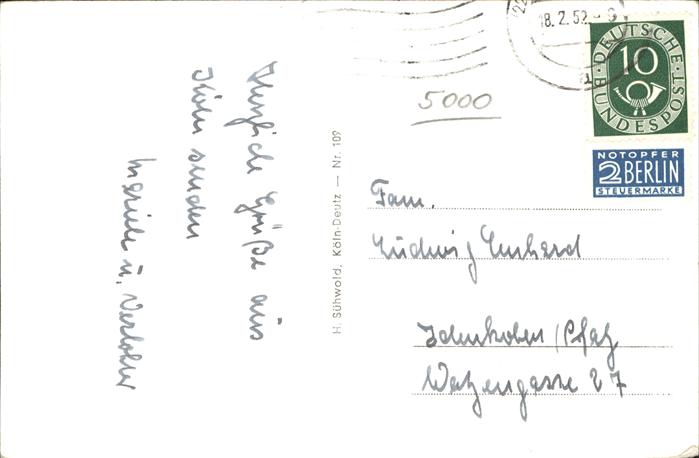 Herzliche Grüße aus
Köln senden
u. Verlobter
H. Sühwold, Köln-Deutz — Nr. 109
5000
18.2.52
DEUTSCHE BUNDESPOST
10
NOTOPFER
2 BERLIN
STEUERMARKE
Fam.
Ludwig
Edenkoben / Pfalz
Watzengasse 27